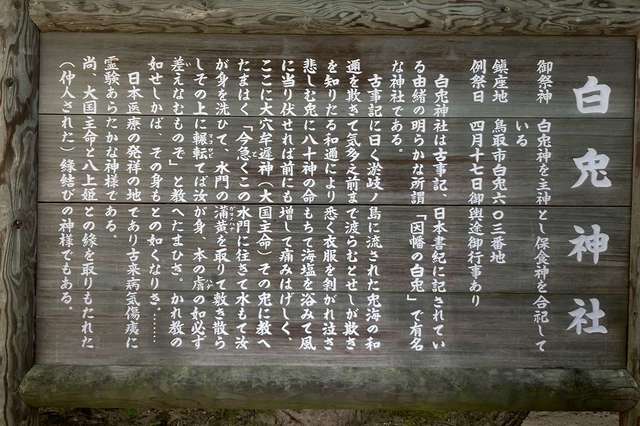 白兎神社
御祭神　白兎神を主神とし保食神を合祀して
いる
鎮座地　鳥取市白兎六〇三番地
例祭日　四月十七日御輿途御行事あり
白兎神社は古事記、日本書紀に記されてい
る由緒の明らかな所謂「因幡の白兎」で有名
な神社である。
古事記に曰く淤岐ノ島に流された兎海の和
邇を敷きて気多之前まで渡らむとせしが欺き
を知りたる和邇により悉く衣服を剥がれ泣き
悲しむ兎に八十神の命もちて海塩を浴みて風
に当り伏せれば前にも増して痛みはげしく、
ここに大穴牟遅神（大国主命）その兎に教へ
たまはく「今急くこの水門に往きて水もて汝
が身を洗ひて、水門の蒲黄を取りて敷き散ら
しその上に輾転てば汝が身、本の膚の如必ず
差えなむものぞ」と教へたまひき、かれ教の
如せしかば、その身もとの如くなりき。……
日本医療の発祥の地であり古来病気傷痍に
霊験あらたかな神様である。
尚、大国主命と八上姫との縁を取りもたれた
（仲人された）縁結びの神様でもある。